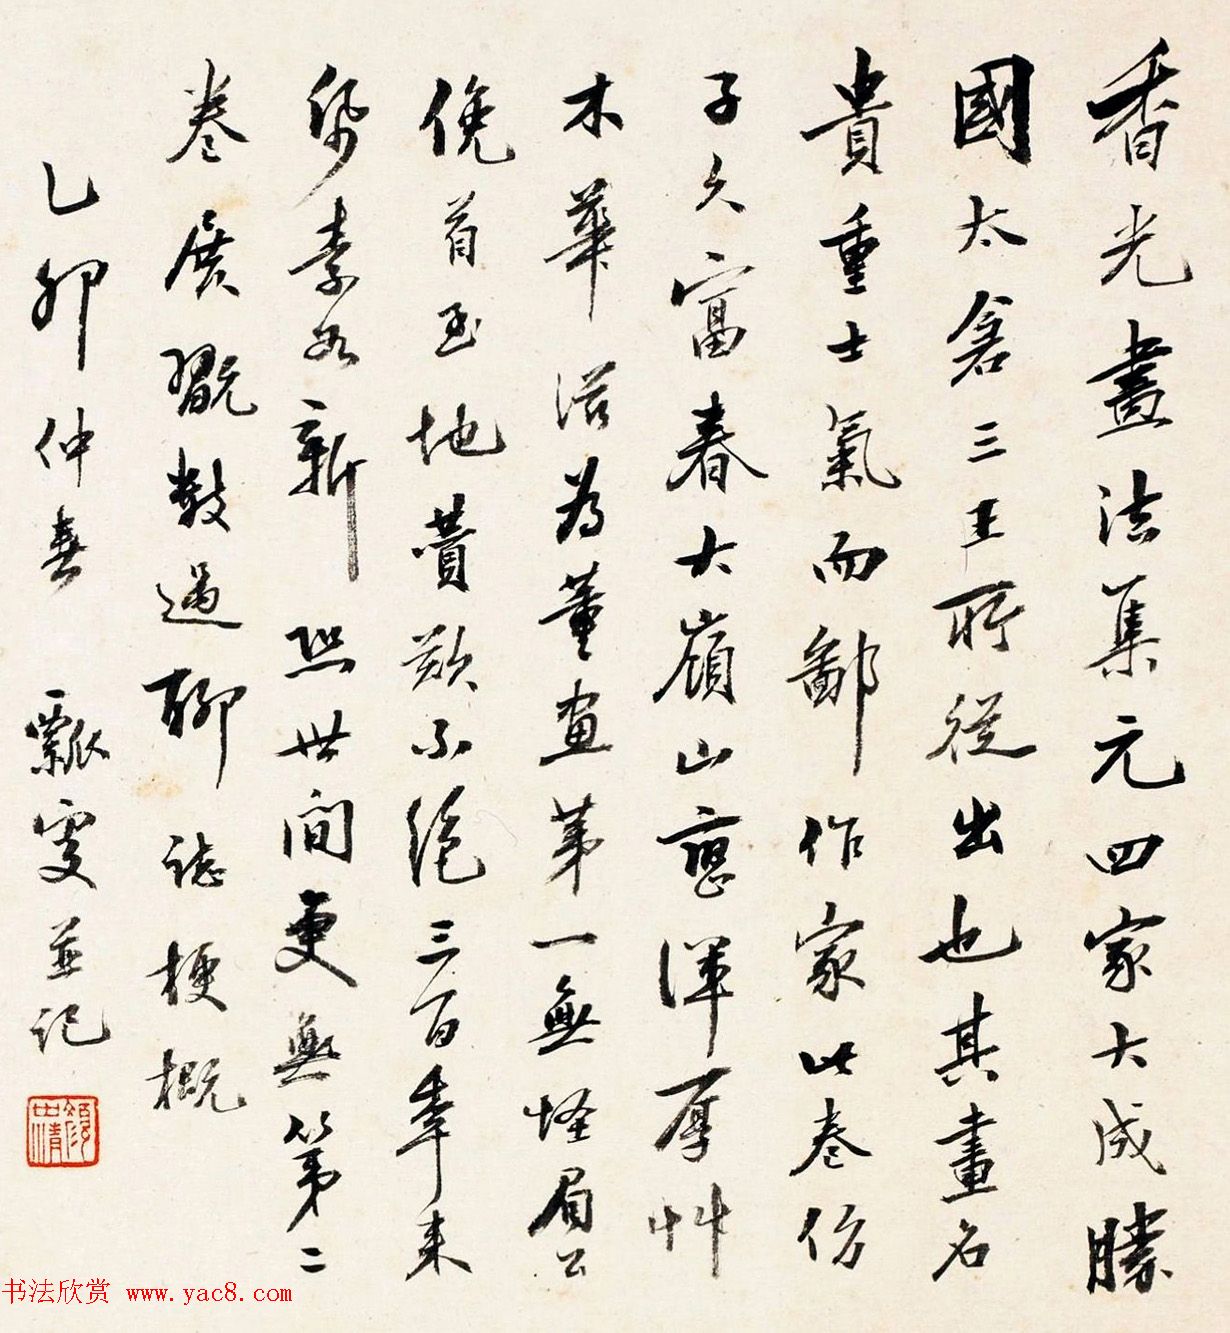 香光畫法集元四家大成勝
國太倉三王所從出也其畫名
貴重士氣而鄙作家此卷仿
子久富春大嶺山巒渾厚艸
木華滋為董畫第一無怪眉公
俛首至地贊歎不絕三百年来
紙素如新與世間更無第二
卷展翫數過聊誌梗概
乙卯仲春 瓢叟並記
書法欣赏 www.yac8.com